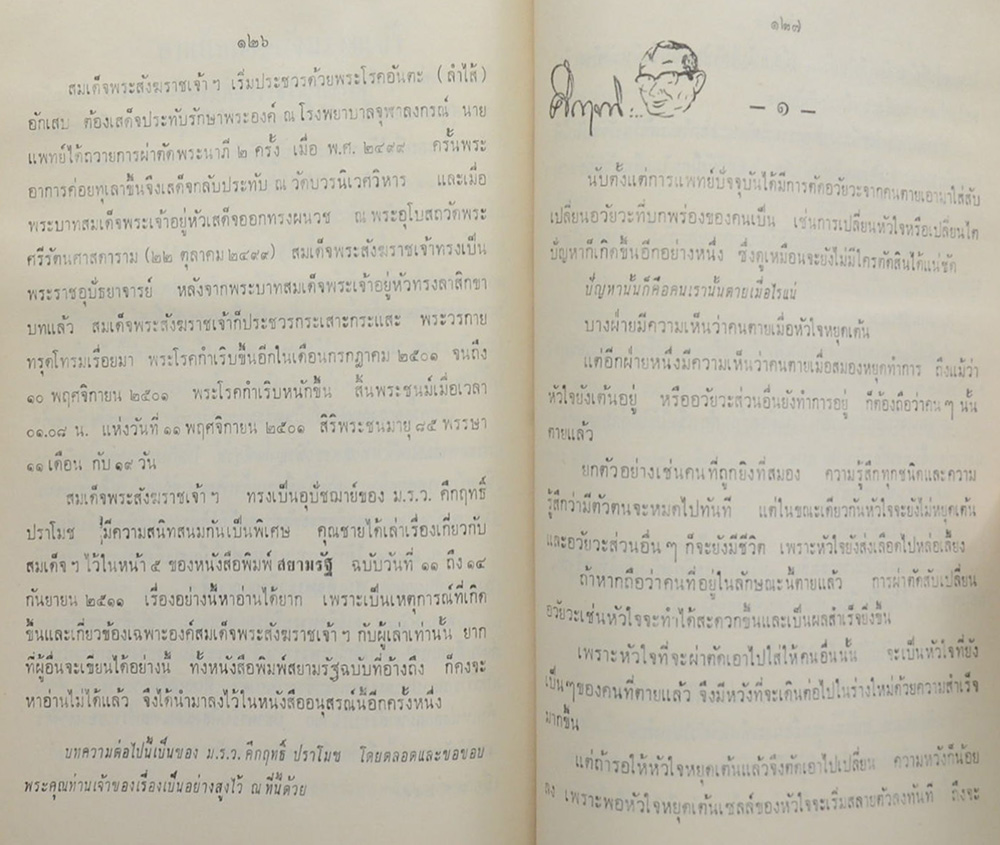 ๑๒๖
สมเด็จพระสังฆราชเจ้า ฯ เริ่มประชวรด้วยพระโรคอันตะ (ลำไส้)
อักเสบ ต้องเสด็จประทับรักษาพระองค์ ณ โรงพยาบาลจุฬาลงกรณ์ นาย
แพทย์ได้ถวายการผ่าตัดพระนาภี ๒ ครั้ง เมื่อ พ.ศ. ๒๔๙๙ ครั้นพระ
อาการค่อยทุเลาขึ้นจึงเสด็จกลับประทับ ณ วัดบวรนิเวศวิหาร และเมื่อ
พระบาทสมเด็จพระเจ้าอยู่หัวเสด็จออกทรงผนวช ณ พระอุโบสถวัดพระ
ศรีรัตนศาสดาราม (๒๒ ตุลาคม ๒๔๙๙) สมเด็จพระสังฆราชเจ้าทรงเป็น
พระราชอุปัธยาจารย์ หลังจากพระบาทสมเด็จพระเจ้าอยู่หัวทรงลาสิกขา
บทแล้ว สมเด็จพระสังฆราชเจ้าก็ประชวรกระเสาะกระแสะ พระวรกาย
ทรุดโทรมเรื่อยมา พระโรคกำเริบขึ้นอีกในเดือนกรกฎาคม ๒๕๐๑ จนถึง
๑๐ พฤศจิกายน ๒๕๐๑ พระโรคกำเริบหนักขึ้น สิ้นพระชนม์เมื่อเวลา
๐๑.๐๘ น. แห่งวันที่ ๑๑ พฤศจิกายน ๒๕๐๑ สิริพระชนมายุ ๘๕ พรรษา
๑๑ เดือน กับ ๑๙ วัน
สมเด็จพระสังฆราชเจ้า ฯ ทรงเป็นอุปัชฌาย์ของ ม.ร.ว. คึกฤทธิ์
ปราโมช มีความสนิทสนมกันเป็นพิเศษ คุณชายได้เล่าเรื่องเกี่ยวกับ
สมเด็จ ฯ ไว้ในหน้า ๕ ของหนังสือพิมพ์ สยามรัฐ ฉบับวันที่ ๑๑ ถึง ๑๔
กันยายน ๒๕๑๑ เรื่องอย่างนี้หาอ่านได้ยาก เพราะเป็นเหตุการณ์ที่เกิด
ขึ้นและเกี่ยวข้องเฉพาะองค์สมเด็จพระสังฆราชเจ้า ฯ กับผู้เล่าเท่านั้น ยาก
ที่ผู้อื่นจะเขียนได้อย่างนี้ ทั้งหนังสือพิมพ์สยามรัฐฉบับที่อ้างถึง ก็คงจะ
หาอ่านไม่ได้แล้ว จึงได้นำมาลงไว้ในหนังสืออนุสรณ์นี้อีกครั้งหนึ่ง
บทความต่อไปนี้เป็นของ ม.ร.ว. คึกฤทธิ์ ปราโมช โดยตลอดและขอขอบ
พระคุณท่านเจ้าของเรื่องเป็นอย่างสูงไว้ ณ ที่นี้ด้วย
๑๒๗
คึกฤทธิ์...
– ๑ –
นับตั้งแต่การแพทย์ปัจจุบันได้มีการตัดอวัยวะจากคนตายเอามาใส่สับ
เปลี่ยนอวัยวะที่บกพร่องของคนเป็น เช่นการเปลี่ยนหัวใจหรือเปลี่ยนไต
ปัญหาก็เกิดขึ้นอีกอย่างหนึ่ง ซึ่งดูเหมือนจะยังไม่มีใครตัดสินได้แน่ชัด
ปัญหานั้นก็คือคนเรานั้นตายเมื่อไรแน่
บางฝ่ายมีความเห็นว่าคนตายเมื่อหัวใจหยุดเต้น
แต่อีกฝ่ายหนึ่งมีความเห็นว่าคนตายเมื่อสมองหยุดทำการ ถึงแม้ว่า
หัวใจยังเต้นอยู่ หรืออวัยวะส่วนอื่นยังทำการอยู่ ก็ต้องถือว่าคน ๆ นั้น
ตายแล้ว
ยกตัวอย่างเช่นคนที่ถูกยิงที่สมอง ความรู้สึกทุกชนิดและความ
รู้สึกว่ามีตัวตนจะหมดไปทันที แต่ในขณะเดียวกันหัวใจจะยังไม่หยุดเต้น
และอวัยวะส่วนอื่น ๆ ก็จะยังมีชีวิต เพราะหัวใจยังส่งเลือดไปหล่อเลี้ยง
ถ้าหากถือว่าคนที่อยู่ในลักษณะนี้ตายแล้ว การผ่าตัดสับเปลี่ยน
อวัยวะเช่นหัวใจจะทำได้สะดวกขึ้นและเป็นผลสำเร็จยิ่งขึ้น
เพราะหัวใจที่จะผ่าตัดเอาไปใส่ให้คนอื่นนั้น จะเป็นหัวใจที่ยัง
เป็นๆของคนที่ตายแล้ว จึงมีหวังที่จะเดินต่อไปในร่างใหม่ด้วยความสำเร็จ
มากขึ้น
แต่ถ้ารอให้หัวใจหยุดเต้นแล้วจึงตัดเอาไปเปลี่ยน ความหวังก็น้อย
ลง เพราะพอหัวใจหยุดเต้นเซลล์ของหัวใจจะเริ่มสลายตัวลงทันที ถึงจะ